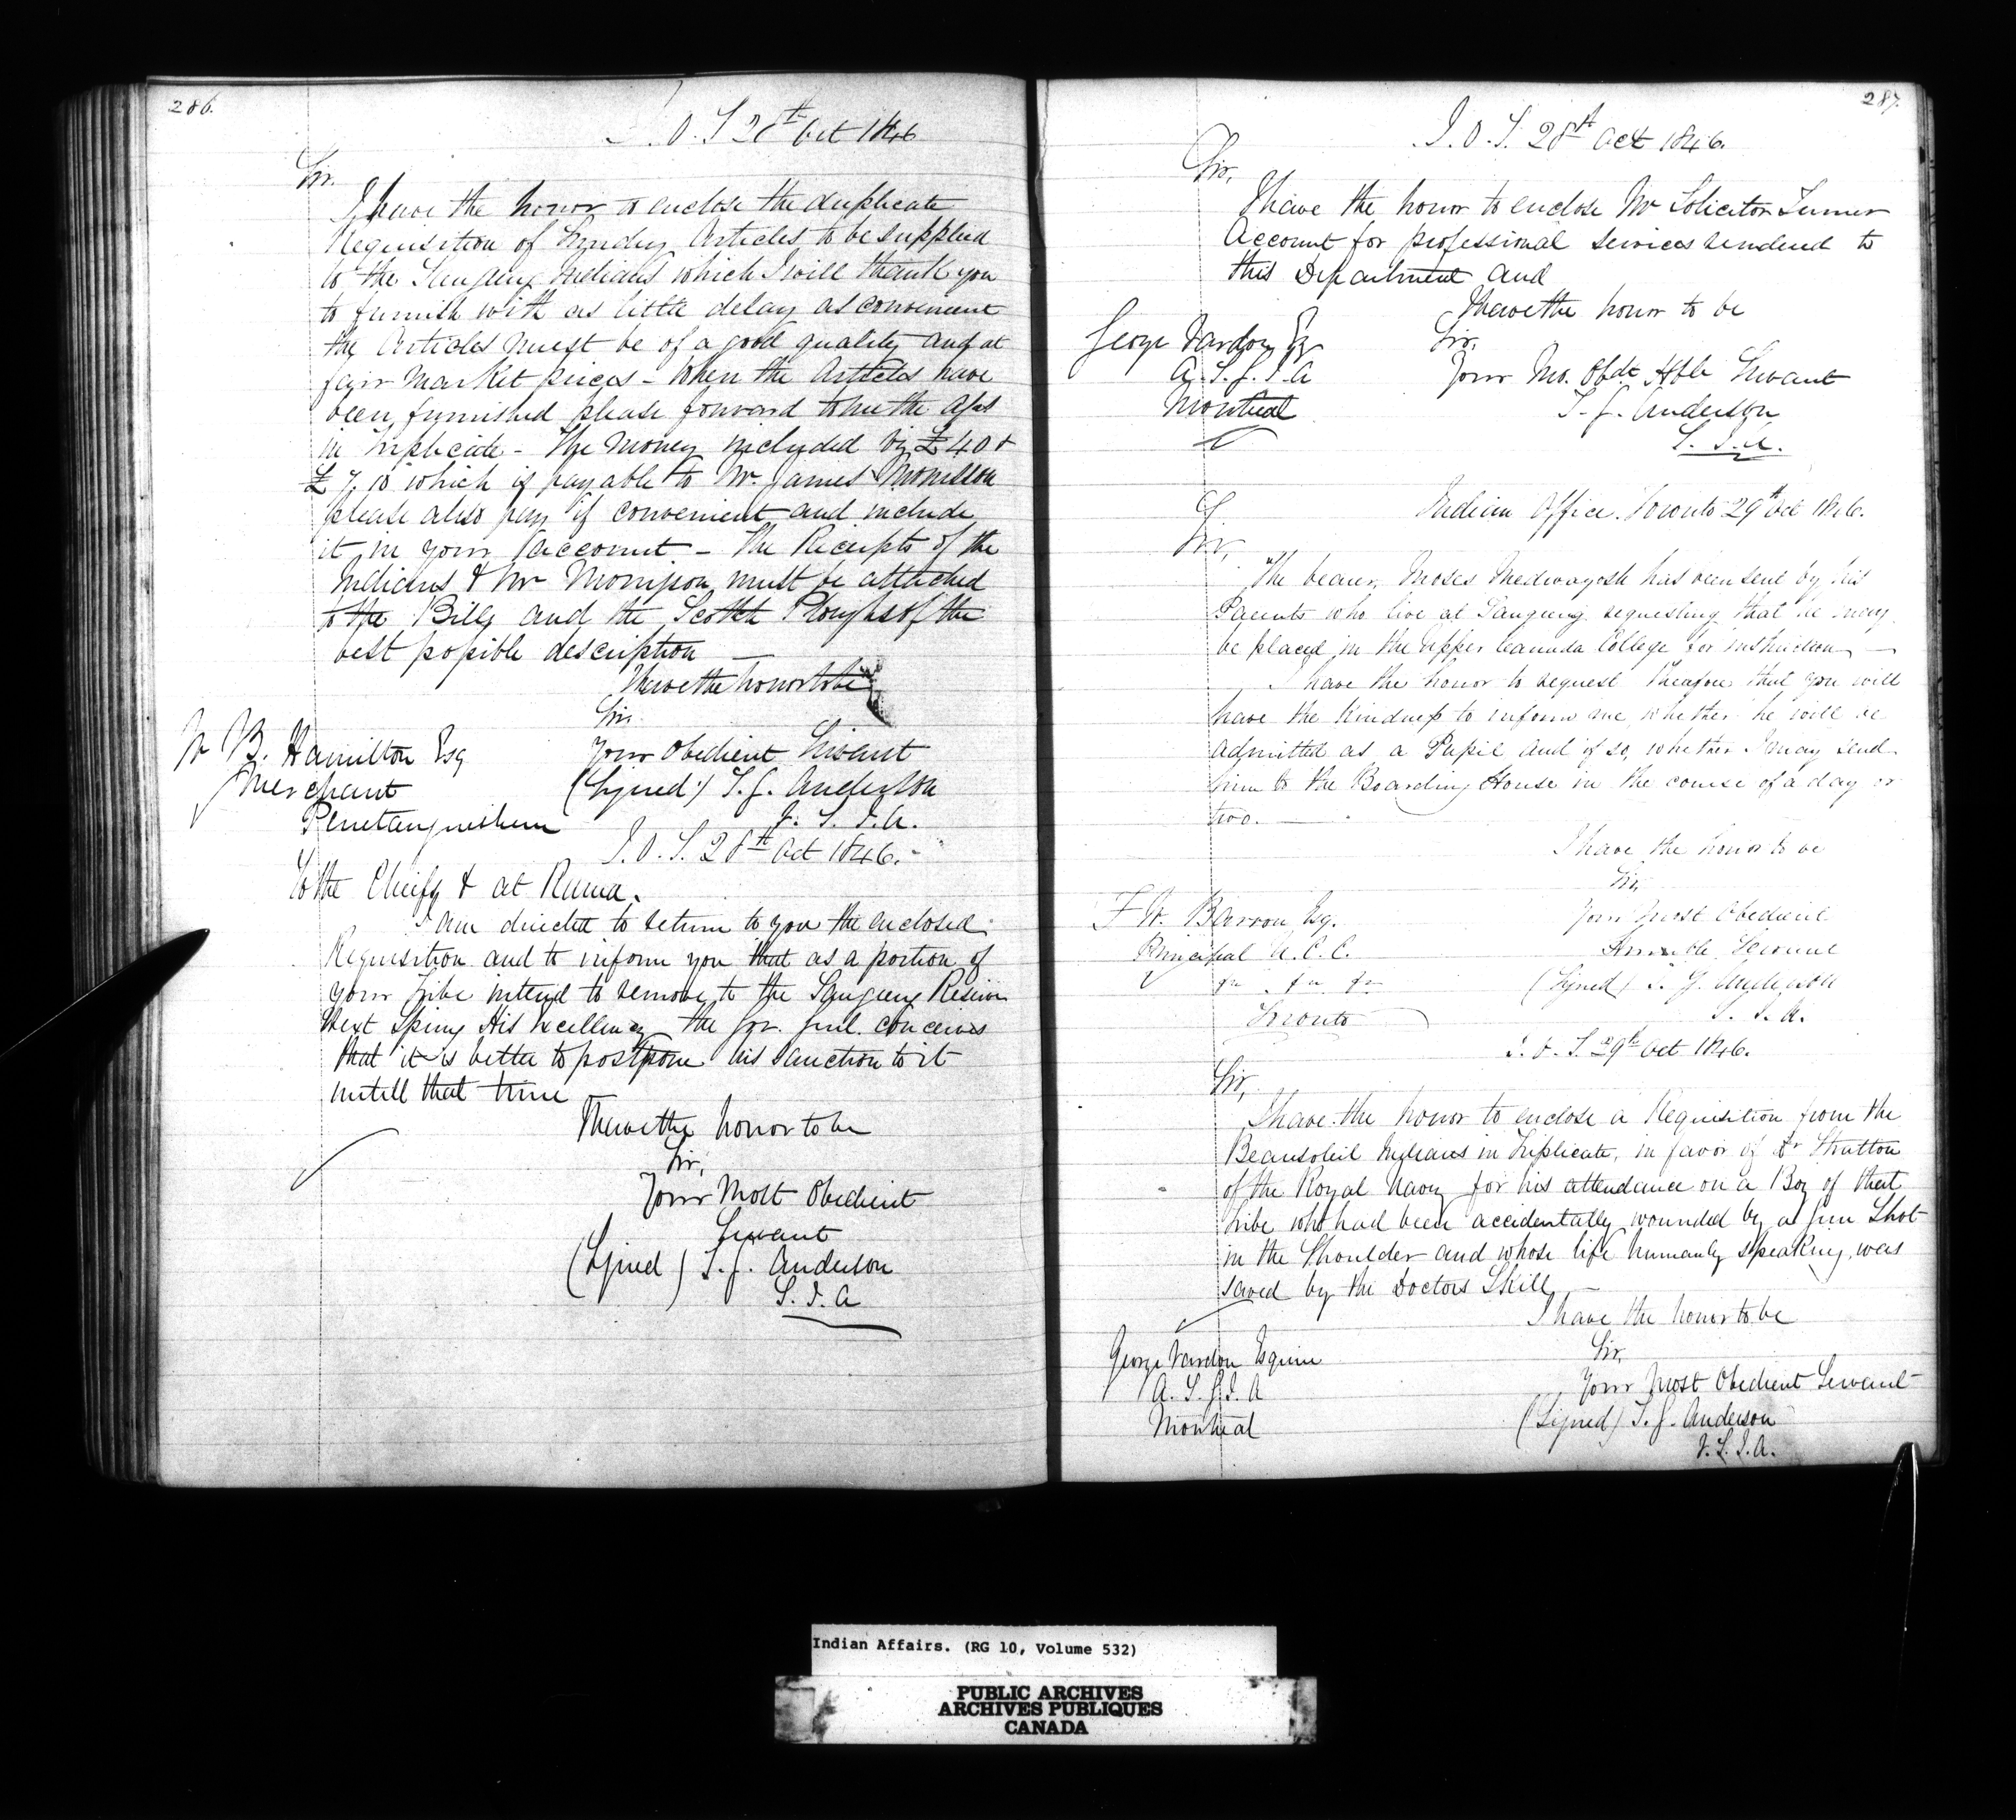 286.
I.O.T 28th Oct 1846
Sir.
I have the honor to enclose the duplicate
Requisition of Sundry Articles to be supplied
to the Saugeeng Indians which I will thank you
to furnish with as little delay as convenient
the Articles must be of a good quality and at
fair market prices - When the Articles have
been furnished please forward to me the a/cs
in triplicate - The money included viz £40 &
£7.10 which is payable to Mr. James Morrisson
please also pay if convenient and include
it in your account - The Receipts of the
Indians & Mr Morrisson must be attached
to the Bills and the Scotch Ploughs of the
best possible description
I have the honor to be
Sir.
Your Obedient Servant
(Signed) T.G. Anderson
S.I.A.
W B. Hamilton Esq
Merchant
Penetanguishene
I.O.T. 28th Oct 1846.
To the Chiefs & at Rama.
I am directed to return to you the enclosed
Requisition and to inform you that as a portion of
your tribe intend to remove to the Saugeeng Reserve
next Spring His Excellency the Gov. Genl. conceives
that it is better to postpone his sanction to it
untill that time
I have the honor to be
Sir,
Your Most Obedient
Servant
(Signed) T.G. Anderson
S.I.A
287.
I.O.T. 28th Oct 1846.
Sir,
I have the honor to enclose Mr Solicitor Turner
Account for professional services rendered to
this Department and
I have the honor to be
Sir,
Your Mo. Obdt Hble Servant
T.G. Anderson
S.I.A.
George Vardon Esq
A.S.G.I.A
Montreal
Indian Office. Toronto 29th Oct 1846.
Sir,
The bearer, Moses Medwayosh has been sent by his
Parents who live at Saugeeng requesting that he may
be placed in the Upper Canada College for instruction
I have the honor to request Therefore that you will
have the kindness to inform me, whether he will be
admitted as a Pupil and if so, whether I may send
him to the Boarding House in the course of a day or
two.
I have the honor to be
Sir,
Your Most Obedient
Humble Servant
(Signed) T.G. Anderson
S.I.A.
F W. Barron Esq.
Principal U.C.C.
Toronto
I.O.T. 29th Oct 1846.
Sir,
I have the honor to enclose a Requisition from the
Beausoleil Indians in Triplicate, in favor of Dr Stratton
of the Royal Navy for his attendance on a Boy of that
tribe who had been accidentally wounded by a Gun Shot
in the Shoulder and whose life humanly speaking, was
saved by the Doctors Skill
I have the honor to be
Sir,
Your Most Obedient Servant
(Signed) T.G. Anderson
S.I.A.
George Vardon Esquire
A.S.G.I.A
Montreal
Indian Affairs. (RG 10, Volume 532)
PUBLIC ARCHIVES
ARCHIVES PUBLIQUES
CANADA